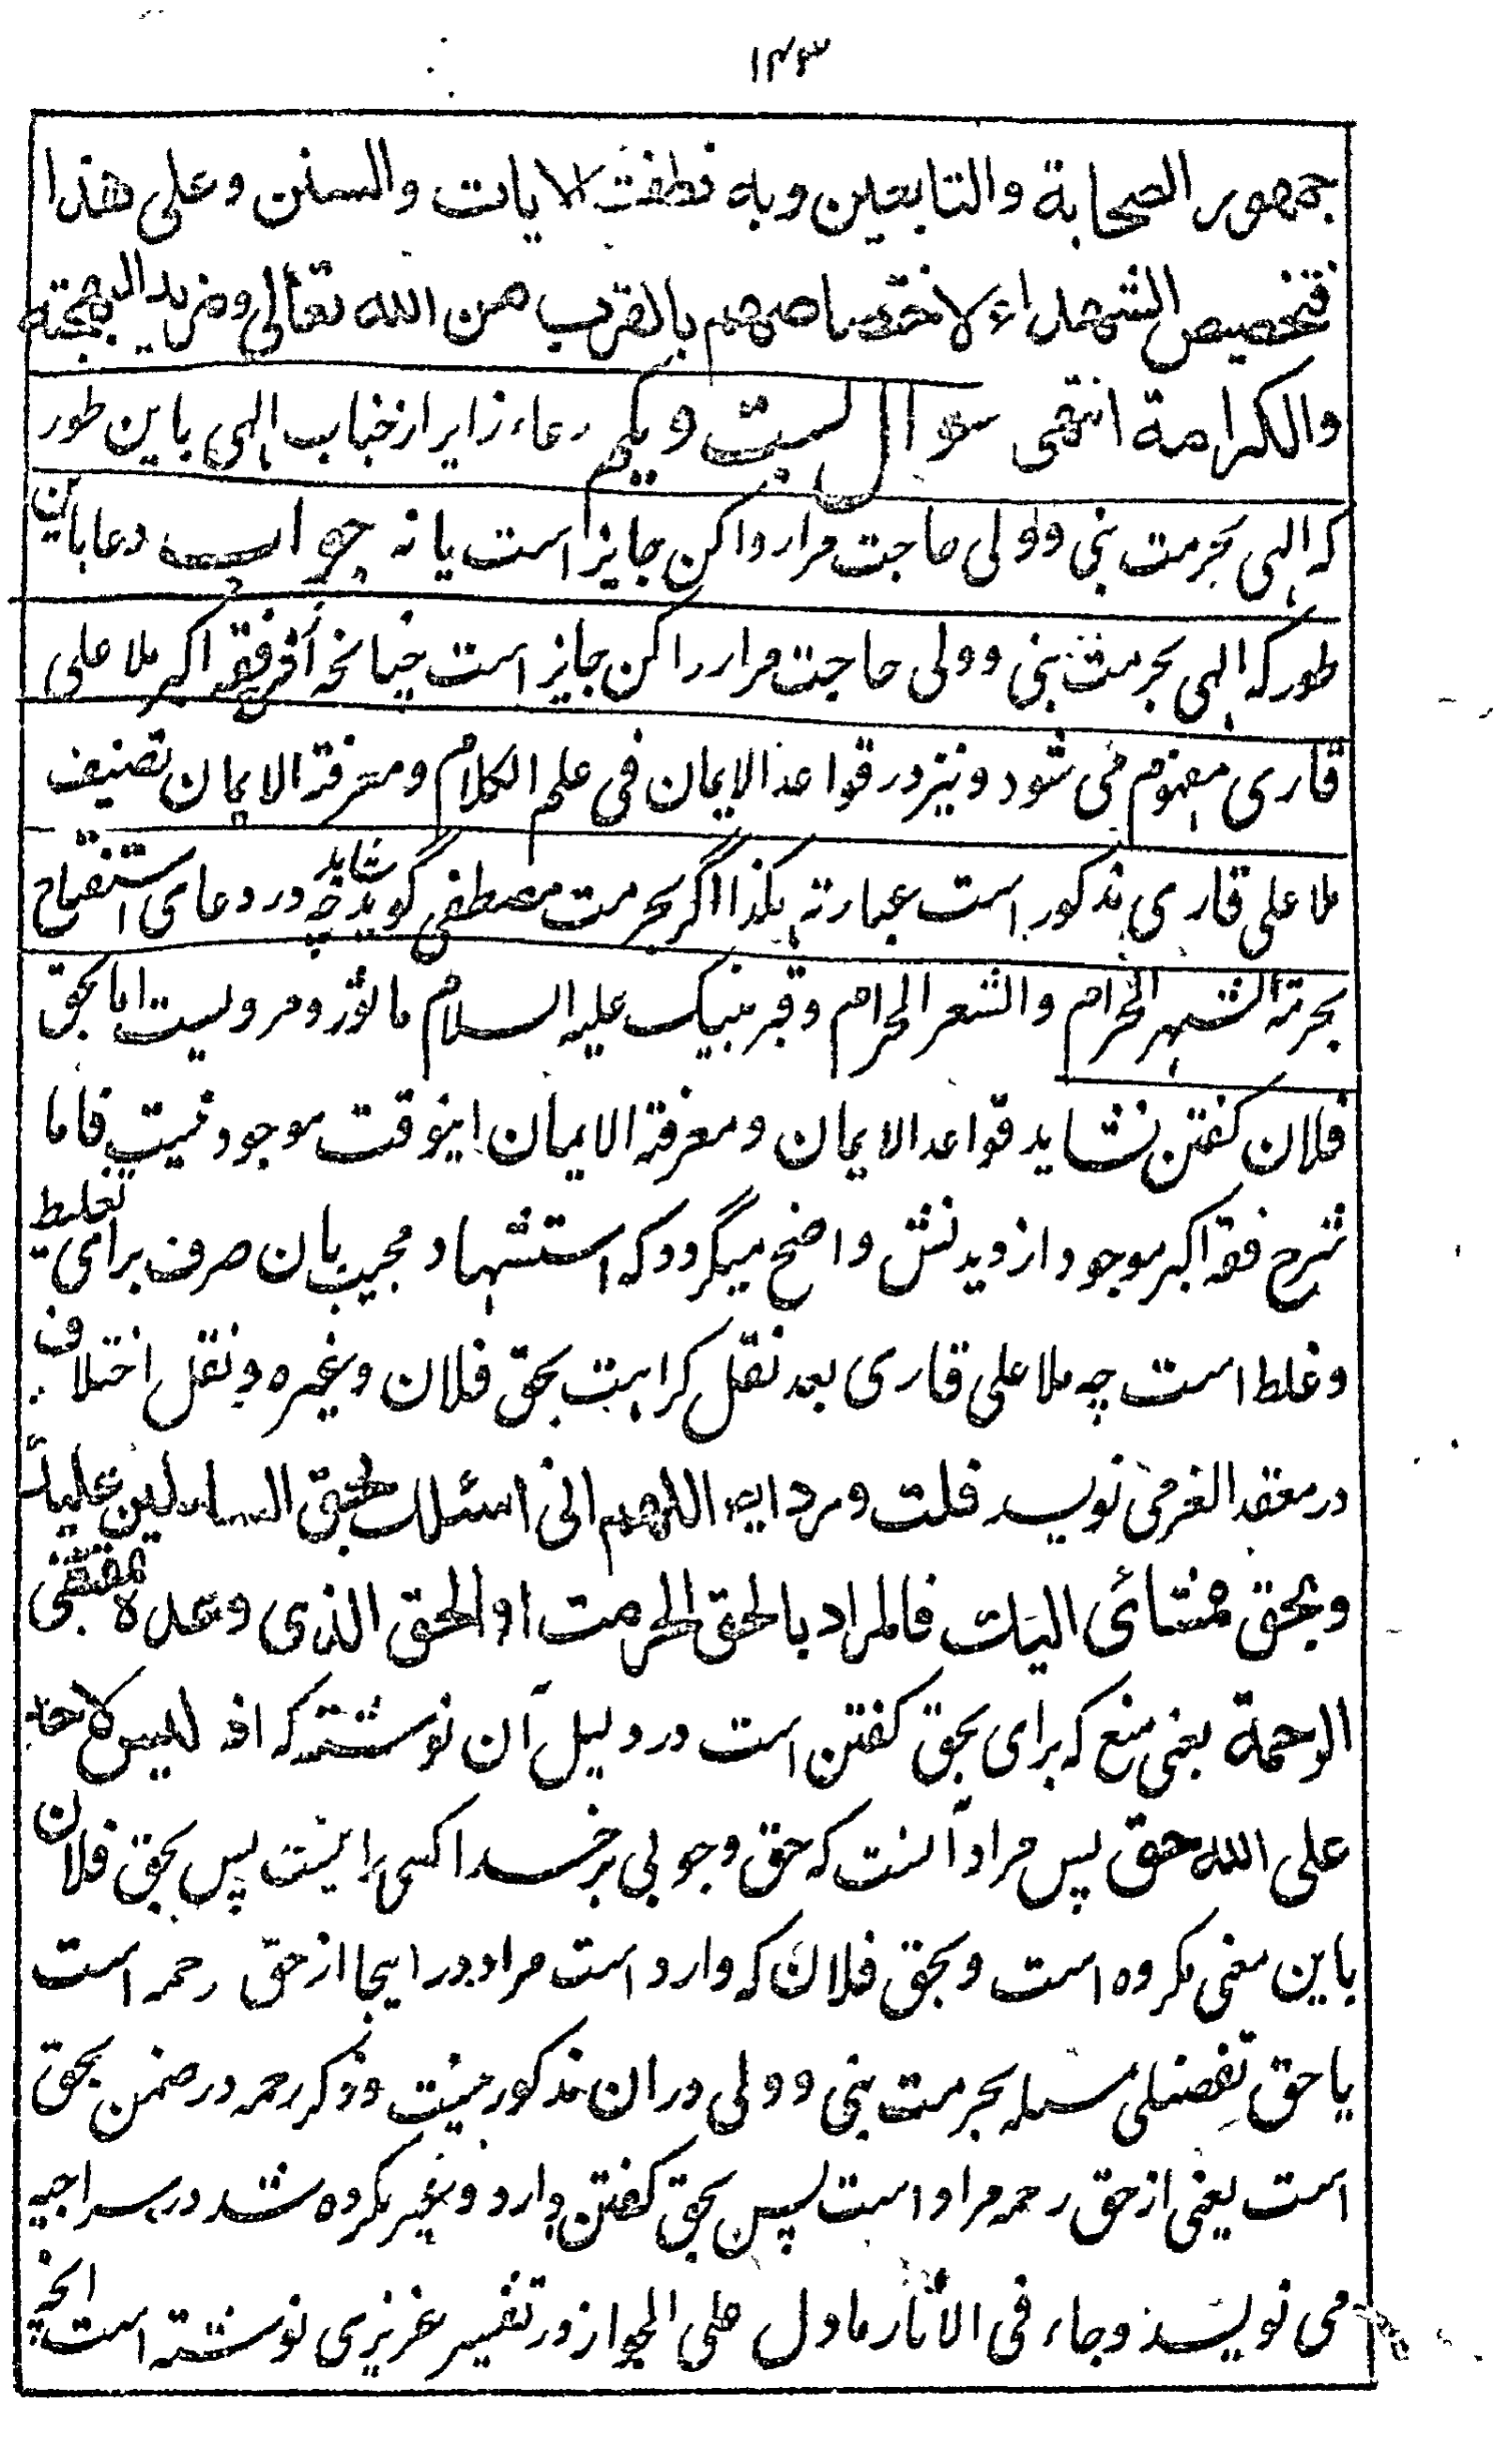 ۱۴۳
جمهور الصحابة والتابعین وبه نطقت الایات والسنن وعلی هذا
فتخصیص الشهداء لاختصاصهم بالقرب من الله تعالی ومزید البهجته
والکرامة انتهی سوال بست ویکم دعاء زایر از جناب الهی باین طور
که الهی بحرمت نبی وولی حاجت مرا روا کن جایز است یا نه جواب دعا باین
طور که الهی بحرمت نبی وولی حاجت مرا روا کن جایز است چنانچه از شرح فقه اکبر ملا علی
قاری مفهوم می شود ونیز در قواعد الایمان فی علم الکلام ومعرفة الایمان تصنیف
ملا علی قاری مذکور است عبارته هکذا اگر بحرمت مصطفی گوید شاید چه در دعای استفتاح
بحرمة الشهر الحرام والشعر الحرام وقبر نبیک علیه السلام ماثور ومرویست اما بحق
فلان گفتن نشاید قواعد الایمان ومعرفة الایمان اینوقت موجود نیست فاما
شرح فقه اکبر موجود از دیدنش واضح میگردد که استشهاد مجیب بان صرف برای تغلیط
وغلط است چه ملا علی قاری بعد نقل کراهت بحق فلان وغیره ونقل اختلاف
در معقد العز می نویسد قلت ورد ایه اللهم انی اسئلک بحق السایلین علیک
وبحق ممشائی الیک فالمراد بالحق الحرمت او الحق الذی وعده مقتضی
الرحمة یعنی منع که برای بحق گفتن است در دلیل آن نوشته که انه لیس لاحد
علی الله حق پس مراد آنست که حق وجوبی بر خدا کسی را نیست پس بحق فلان
باین معنی مکروه است وبحق فلان که وارد است مراد در اینجا از حق رحمه است
یا حق تفضلی مسله بحرمت نبی وولی دران مذکور نیست وذکر رحمه در ضمن بحق
است یعنی از حق رحمه مراد است پس بحق گفتن وارد وغیر مکروه شد در سراجیه
می نویسد وجاء فی الاثار ما دل علی الجواز در تفسیر عزیزی نوشته است انچه